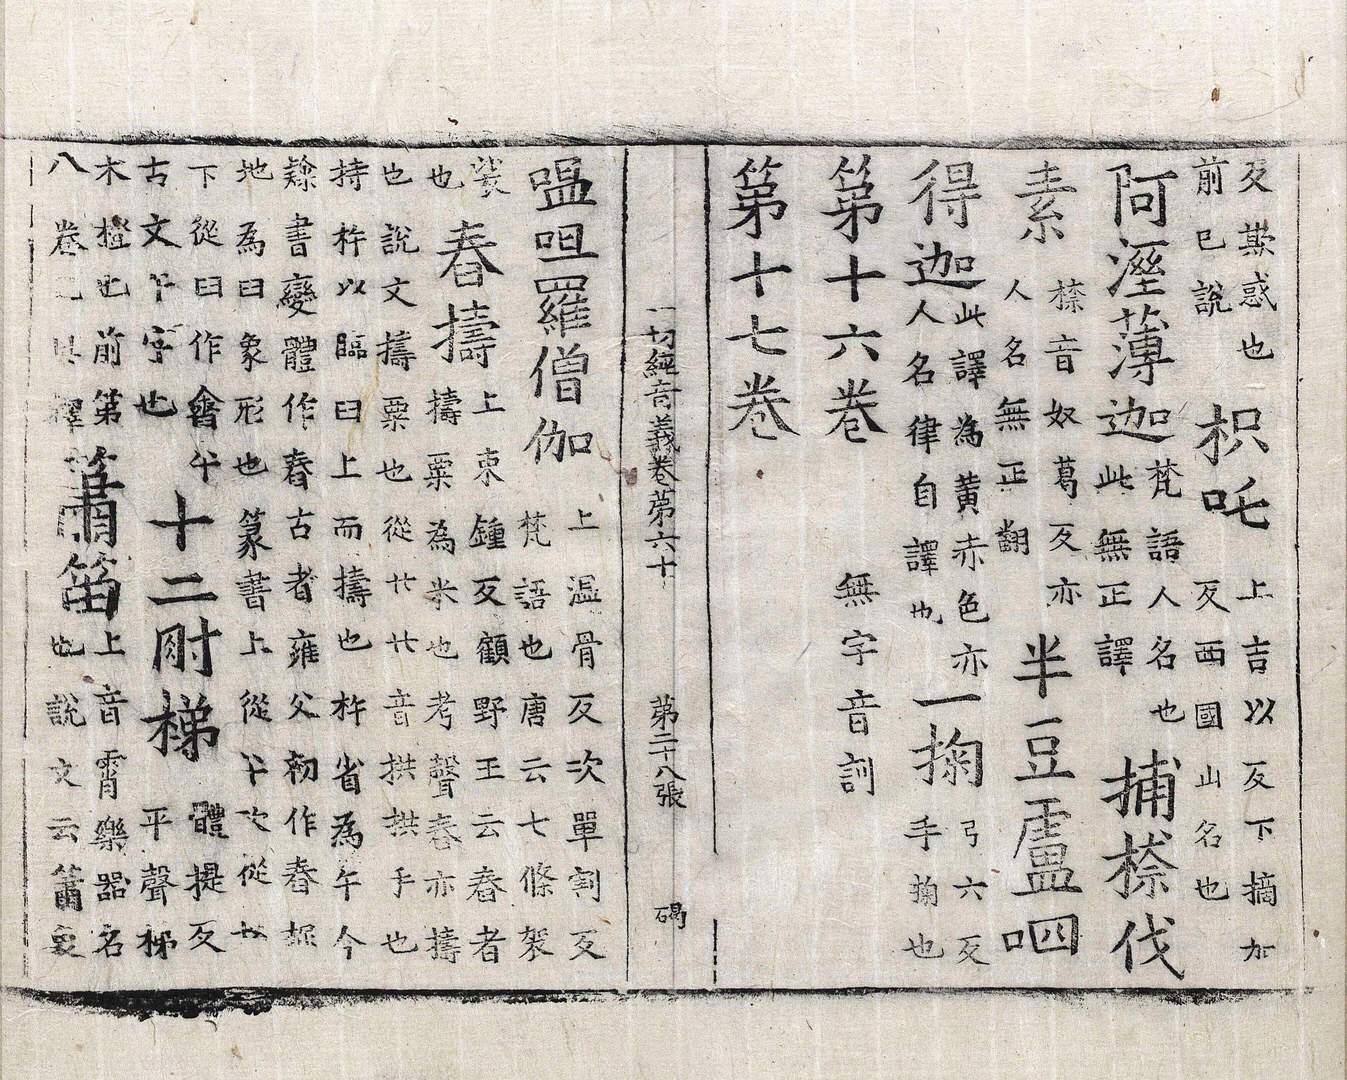 反欺惑也
前已說
枳吒
上吉以反下摘加
反西國山名也
阿溼薄迦
梵語人名也
此無正譯
捕㮈伐
素
㮈音奴葛反亦
人名無正翻
半豆盧呬
得迦
此譯為黃赤色亦
人名律自譯也
一掬
弓六反
手掬也
第十六卷
無字音訓
第十七卷
一切經音義卷第六十 第二十八張 碣
嗢呾羅僧伽
上溫骨反次單割反
梵語也唐云七條袈
裟
也
舂擣
上束鍾反顧野王云舂者
擣粟為米也考聲舂亦擣
也說文擣粟也從廾廾音拱拱手也
持杵以臨臼上而擣也杵省為午今
隸書變體作舂古者雍父初作舂掘
地為臼象形也篆書上從午次從廾
下從臼作午
古文午字也
十二肘梯
體提反
平聲梯
木橙也前第
八卷已具釋
簫笛
上音霄樂器名
也說文云簫象